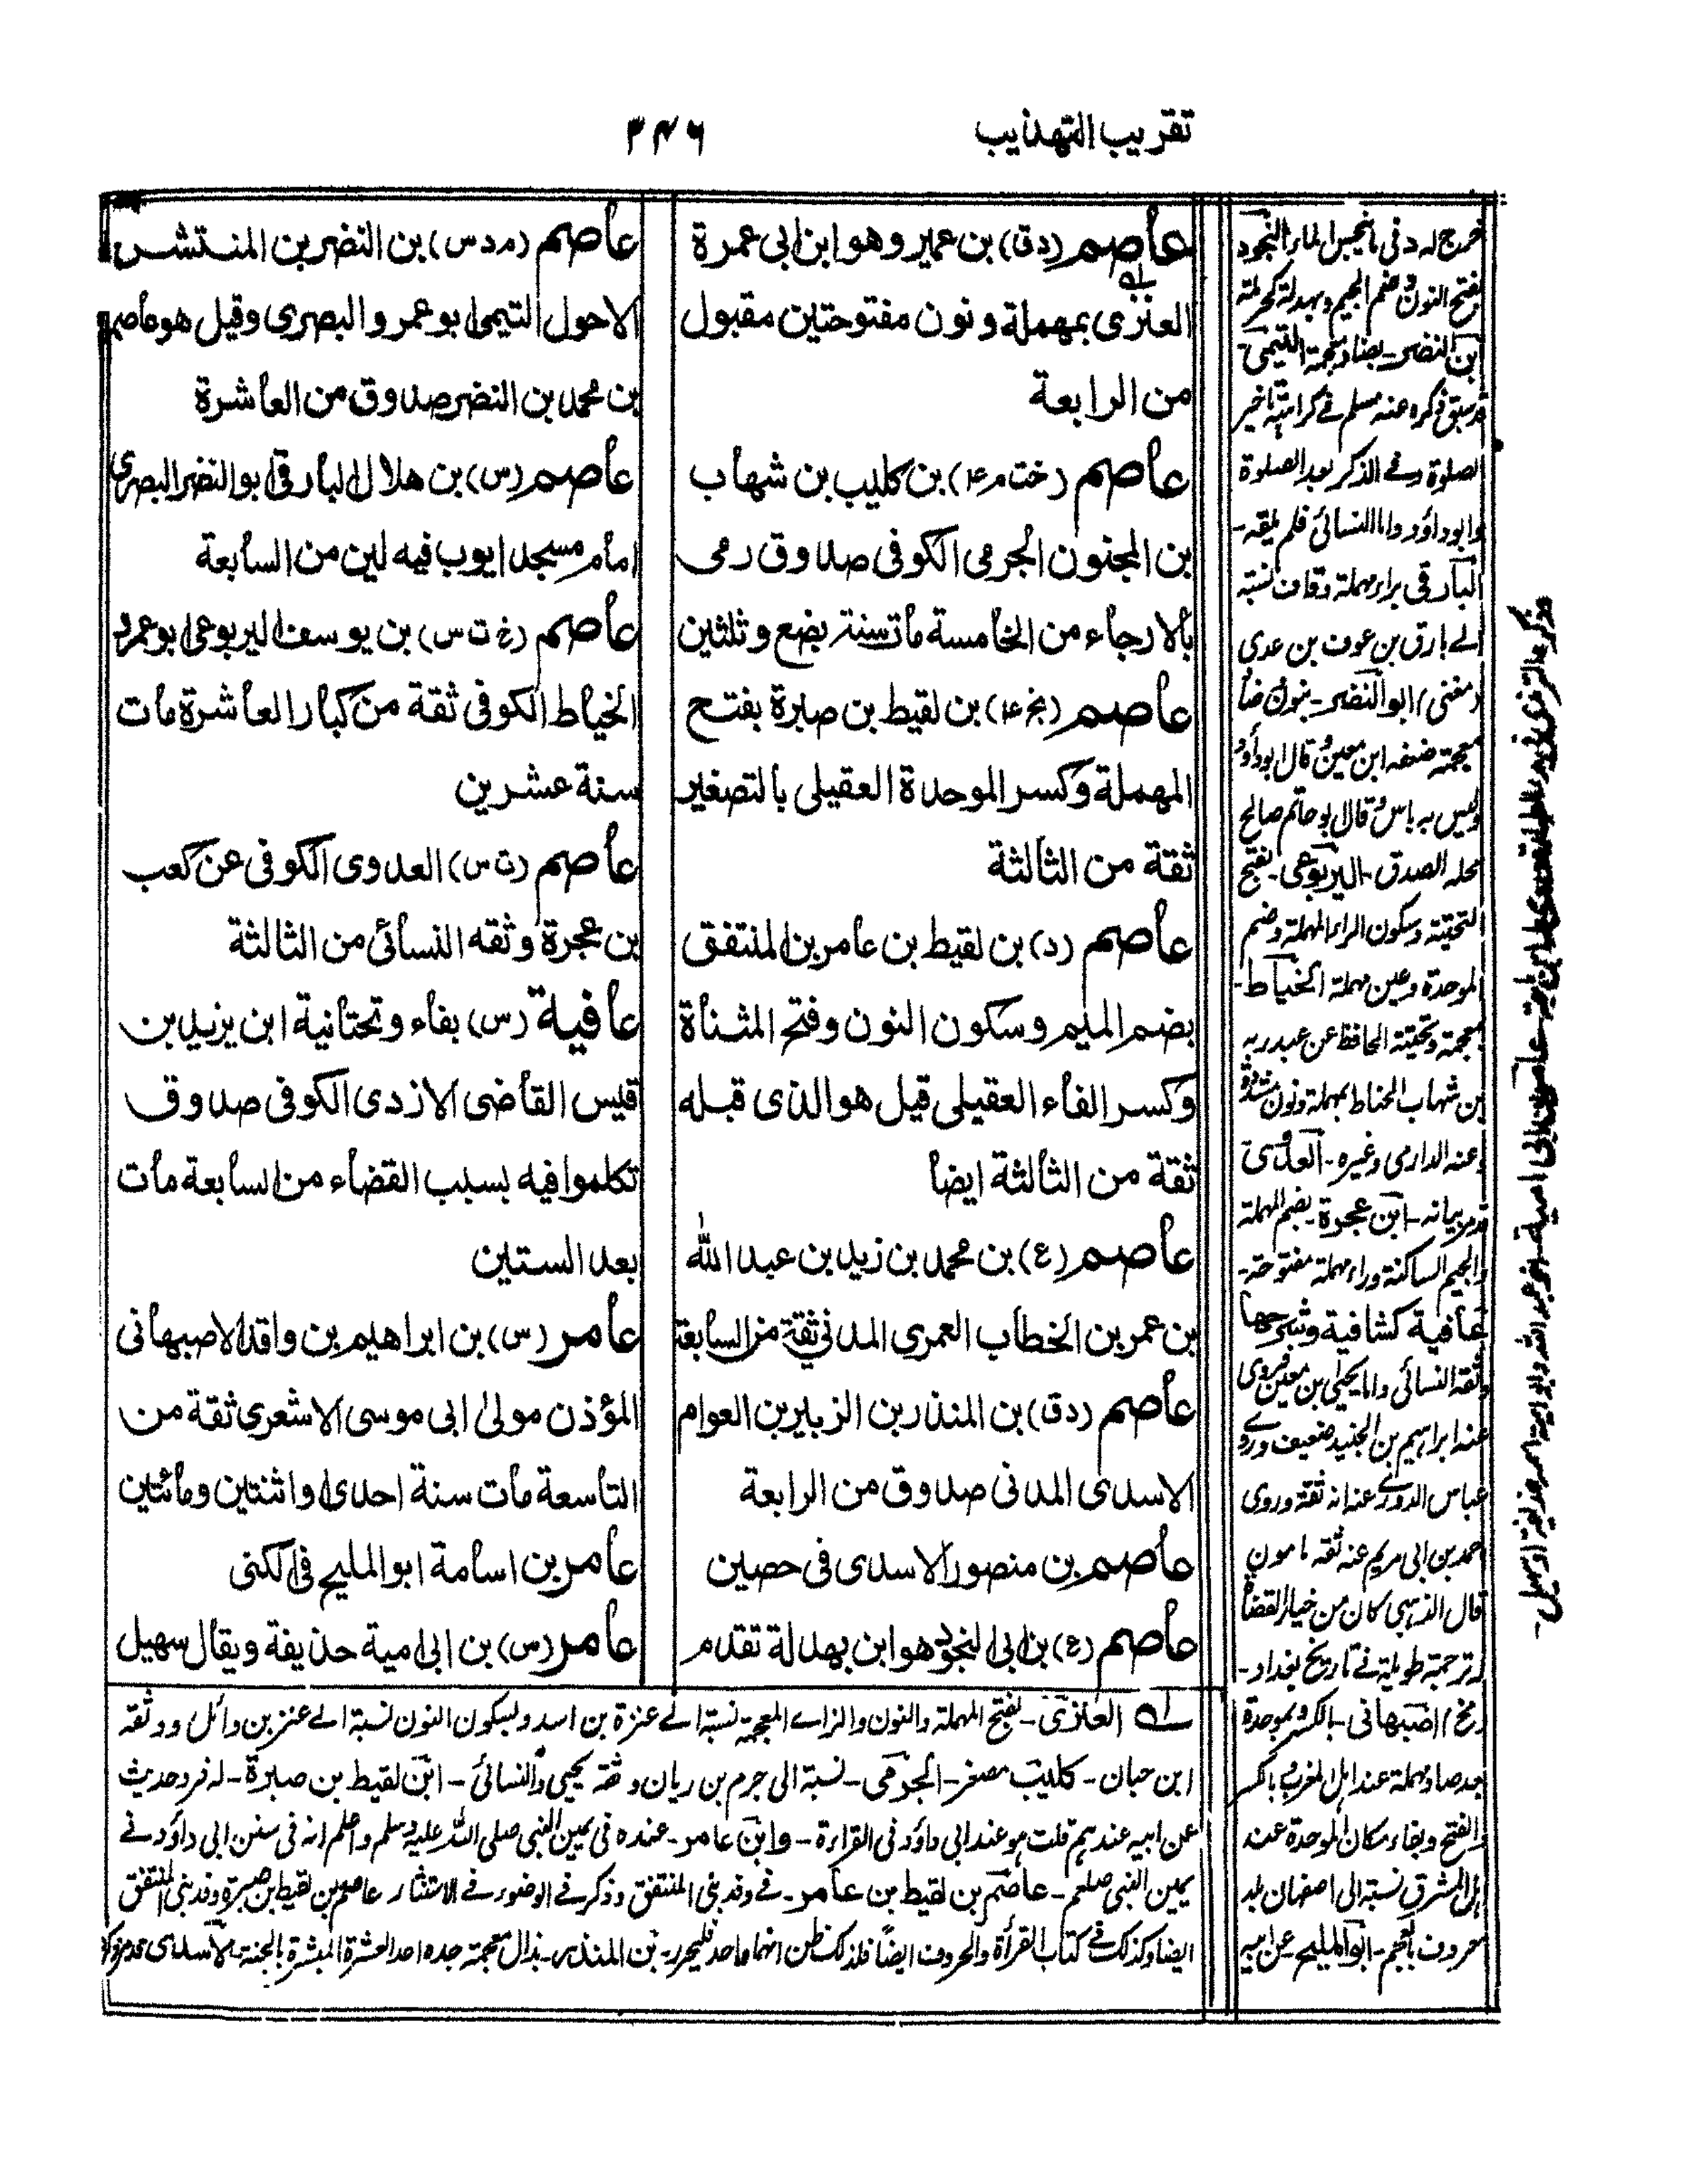 تقريب التهذيب
٣٤٦
عاصم (د ق) بن عمير وهو ابن ابى عمرة
العنزى بمهملة ونون مفتوحتين مقبول
من الرابعة
عاصم (خت م ع٤) بن كليب بن شهاب
بن المجنون الجرمى الكوفى صدوق رمى
بالارجاء من الخامسة مات سنة بضع وثلثين
عاصم (بخ ع٤) بن لقيط بن صابرة بفتح
المهملة وكسر الموحدة العقيلى بالتصغير
ثقة من الثالثة
عاصم (د) بن لقيط بن عامر بن المنتفق
بضم الميم وسكون النون وفتح المثناة
وكسر الفاء العقيلى قيل هو الذى قبله
ثقة من الثالثة ايضا
عاصم (ع) بن محمد بن زيد بن عبد الله
بن عمر بن الخطاب العمرى المدنى ثقة من السابعة
عاصم (د ق) بن المنذر بن الزبير بن العوام
الاسدى المدنى صدوق من الرابعة
عاصم بن منصور الاسدى فى حصين
عاصم (ع) بن ابى النجود هو ابن بهدلة تقدم
عاصم (م د س) بن النضر بن المنتشر
الاحول التيمى ابو عمر و البصرى وقيل هو عاصم
بن محمد بن النضر صدوق من العاشرة
عاصم (س) بن هلال البارقى ابو النضر البصرى
امام مسجد ايوب فيه لين من السابعة
عاصم (خ ت س) بن يوسف اليربوعى ابو عمرو
الخياط الكوفى ثقة من كبار العاشرة مات
سنة عشرين
عاصم (ت س) العدوى الكوفى عن كعب
بن عجرة وثقه النسائى من الثالثة
عافية (س) بفاء وتحتانية ابن يزيد بن
قيس القاضى الازدى الكوفى صدوق
تكلموا فيه بسبب القضاء من السابعة مات
بعد الستين
عامر (س) بن ابراهيم بن واقد الاصبهانى
المؤذن مولى ابى موسى الاشعرى ثقة من
التاسعة مات سنة احدى او اثنتين ومائتين
عامر بن اسامة ابو المليح فى الكنى
عامر (س) بن ابى امية حذيفة ويقال سهيل
العنزى - بفتح المهملة والنون والزاے المعجمة نسبة الے عنزة بن اسد ولسكون النون نسبة الے عنز بن وائل ووثقه
ابن حبان - كليب مصغر - الجرمى - نسبة الى جرم بن ريان وثقه يحيى والنسائى - ابن لقيط بن صبرة - له فرد حديث
عن ابيه عندهم قلت هو عند ابى داؤد فى القراءة - وابن عامر - عنده فى يمين النبى صلى الله عليه وسلم واعلم انه فى سنن ابى داؤد فے
يمين النبى صلعم - عاصم بن لقيط بن عامر - فے وفد بنى المنتفق وذكر فے الوضوء فے الاستنثار عاصم بن لقيط بن صبرة وفد بنى المنتفق
ايضا وكذلك فے كتاب القرأة والحروف ايضاً فلذلك ظن انهما واحد فليحرر - بن المنذر - بذال معجمة جده احد العشرة المبشرة بالجنة - الاسدى
خرج له د فى
بفتح النون وضم الجيم وبهدلة كحرملة
ابن النضر - بضاد معجمة التيمى
ذكره عنه مسلم فے تاخير
الصلوة وفے الذكر بعد الصلوة
وابو داؤد واما النسائى فلم يلقه -
البارقى براء مهملة وقاف نسبة
الے بارق بن عوف بن عدى
(مغنى) ابو النضر - بنون ضاد
معجمة ضعفه ابن معين وقال ابو داؤد
ليس به باس وقال ابو حاتم صالح
محله الصدق - اليربوعى - بفتح
التحتية وسكون الراء المهملة وضم
الموحدة وعين مهملة الخياط -
بمعجمة وتحتية الحافظ عن عبد ربه
بن شهاب الحناط بمهملة ونون مشددة
وعنه الدارمى وغيره - العدوى
قد مر بيانه - ابن عجرة - بضم المهملة
والجيم الساكنة وراء مهملة مفتوحة -
عافية كشافية
وثقه النسائى واما يحيى بن معين فروى
عنه ابراهيم بن الجنيد ضعيف وروى
عباس الدورى عنه انه ثقة وروى
احمد بن ابى مريم عنه ثقة مامون
قال الذهبى كان من خيار القضاة
له ترجمة طويلة فے تاريخ بغداد -
اصبهانى - بالكسر وبموحدة
بعد صاد مهملة عند اهل المغرب وبالكسر
والفتح وبفاء مكان الموحدة عند
اهل المشرق نسبة الى اصفهان بلد
معروف بالعجم - ابو المليح - عن ابيه